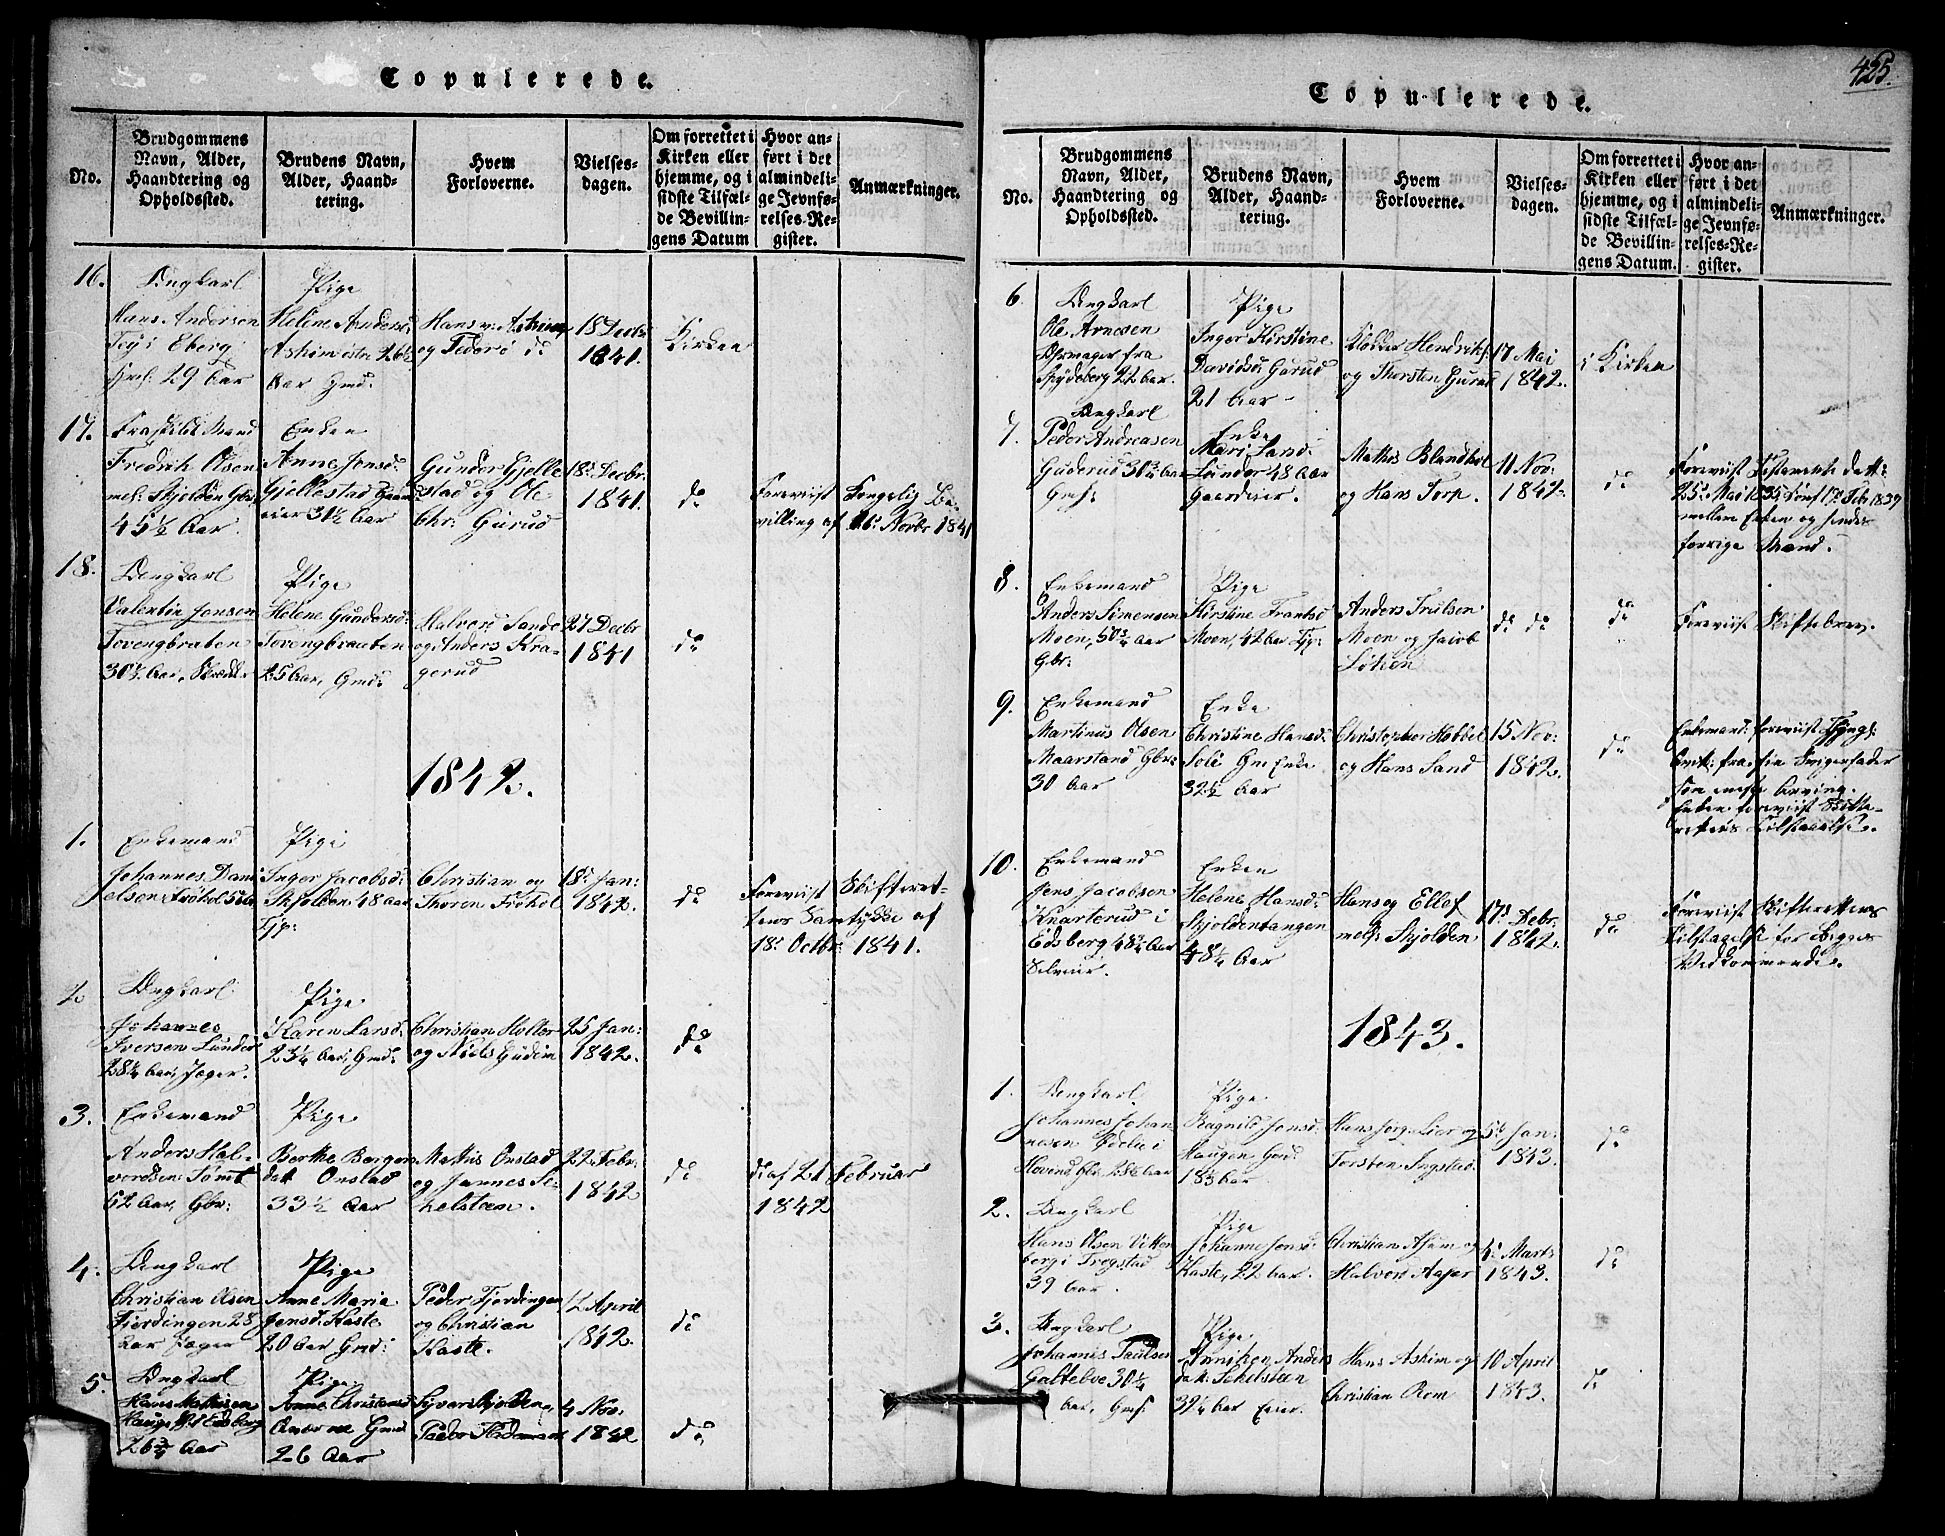 Copulerede.
No.
Brudgommens Navn, Alder, Haandtering og Opholdssted.
Brudens Navn, Alder, Haandtering.
Hvem Forloverne.
Vielsesdagen.
Om forrettet i Kirken eller hjemme, og i sidste Tilfælde Bevillingens Datum
Hvor anført i det almindelige Jevnførelses-Register.
Anmærkninger.
16.
Ungkarl
Hans Andersen
29 Aar
Pige
Helene Anders:
Aar Gmd.
18 Decbr
1841.
Kirken
17.
Fraskilt Mand
Fredrik Olsen
45½ Aar
Enken
Anne Jensd:
Gjellestad
eier 31½ Aar
Gunder Gjelle
stad og Ole
Chr: Gurud
18: Decbr:
1841.
do
Foreviist Kongelig Be-
villing af 16: Novbr 1841
18.
Ungkarl
Valentin Jensen
Tovengbraaten
Pige
Helene Gundersd:
Tovengbraaten
25 Aar, Gmd:
Halvor Sande
og Anders Kra-
gerud
27 Decbr
1841
do
1842.
1.
Enkemand
Johannes Dani
elsen Frøhol
Pige
Inger Jacobsd:
Skjolden 48 Aar
Christian og
Thoren Frøhol
18: Jan:
1842.
do
Foreviist Skifteret-
tens Samtykke af
18: Octbr: 1841.
2
Ungkarl
Johannes
Iversen Lunder
28¼ Aar, Jæger.
Pige
Karen Larsd:
23¼ Aar, Gmd:
Christian Holter
og Niels Gudim
25 Jan:
1842.
do
3.
Enkemand
Anders Hal-
vordsen Tømt
62 Aar, Gbr:
Pige
Berthe Bergers
dat Onstad
33½ Aar
Mathis Onstad
og Jannes Se-
kelsteen.
22 Febr.
1842
do
do af 21 Februar
1842
4.
Ungkarl
Christian Olsen
Fjerdingen 28
Aar Jæger
Pige
Anne Maria
Jensd. Kaste
20 Aar Gmd:
Peder Fjerdingen
og Christian
Kaste.
12 April
1842.
do
5.
Ungkarl
Hans Mathisen
Haugs Edsberg
26¾ Aar
Pige
Anne Christensd
26 Aar
4 Nov:
1842
do
425.
Copulerede.
No.
Brudgommens Navn, Alder, Haandtering og Opholdssted.
Brudens Navn, Alder, Haandtering.
Hvem Forloverne.
Vielsesdagen.
Om forrettet i Kirken eller hjemme, og i sidste Tilfælde Bevillingens Datum.
Hvor anført i det almindelige Jevnførelses-Register.
Anmærkninger.
6
Ungkarl
Ole Arnesen
fra
Spydeberg 22 Aar.
Pige
Inger Kirstine
Davidsd: Gurud
21 Aar
Hendriks:
og Thorsten Gurud
17 Mai
1842.
i Kirken
7.
Ungkarl
Peder Andreasen
Guderud 30¾ Aar
Enke
Mari Lars:
Lunder 48 Aar
Gaardeier.
Mathis Blandhol
og Hans Torp.
11 Nov:
1842.
do
Foreviist Testamente dat:
25: Mai 1835 Conf 17: Feb 1839
mellem Enken og hendes
forrige Mand.
8.
Enkemand
Anders Simensen
Moen, 50¾ Aar
Gbr:
Pige
Kirstine Frantsd
Moen, 42 Aar
Anders Trulsen
Moen og Jacob
Løken
do do
do
Foreviist Skiftebrev.
9.
Enkemand
Martinus Olsen
Maarstad Gbr:
30 Aar
Enke
Christine Hansd:
Solie Gm Enke
32½ Aar
Christopher Hobbel
og Hans Sand
15 Nov:
1842.
do
Enkemand: foreviist
fra sin Svigerfader
som eneste Arving.
Enken foreviist Skifte-
rettens Tilstaaelse.
10.
Enkemand
Jens Jacobsen
Knarterud i
Edsberg 48¾ Aar
Selveier.
Enken
Helene Hansd:
Skjoldentangen
48¼ Aar
Hans og Ellef
Skjolden
17: Debr.
1842.
do
Foreviist Skifterettens
Tilstaaelse for Begges
Vedkommende.
1843.
1.
Ungkarl.
Johannes Johan
nesen Ødelie i
Pige
Ragnild Jensd:
Haugen Gmd:
18¾ Aar
Hans Jørg. Lier og
Torsten Ingstad
5: Jan:
1843.
do
2.
Ungkarl
Hans Olsen Vitten
berg i Trøgstad
39 Aar.
Pige
Johanne Jensd:
Kaste, 22 Aar.
Christian Askim og
Halvor Aaser
4: Marts
1843.
do
3.
Ungkarl
Johannes Paulsen
Galtebve 30¼
Aar, Gmf:
Pige
Anniken Anders
dat: Sekelsteen
32¼ Aar Eier.
Hans Askim og
Christian Rom
10 April
1843.
do